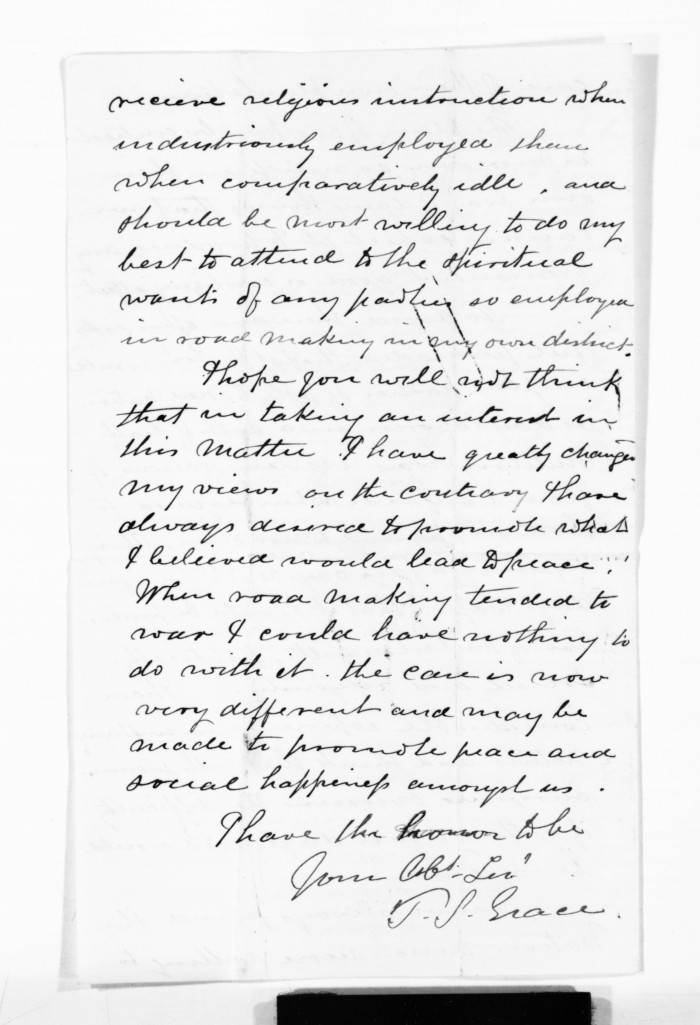 recieve religious instruction when
industriously employed than
when comparatively idle, and
should be most willing to do my
best to attend to the spiritual
wants of any parties so employed
in road making in my own district.
I hope you will not think
that in taking an interest in
this Matter I have greatly changed
my views on the contrary I have
always desired to promote what
I believed would lead to peace.
When road making tended to
war I could have nothing to
do with it. the case is now
very different and may be
made to promote peace and
social happiness amongst us.
I have the honor to be
Your Obt. Sert
T. S. Grace.